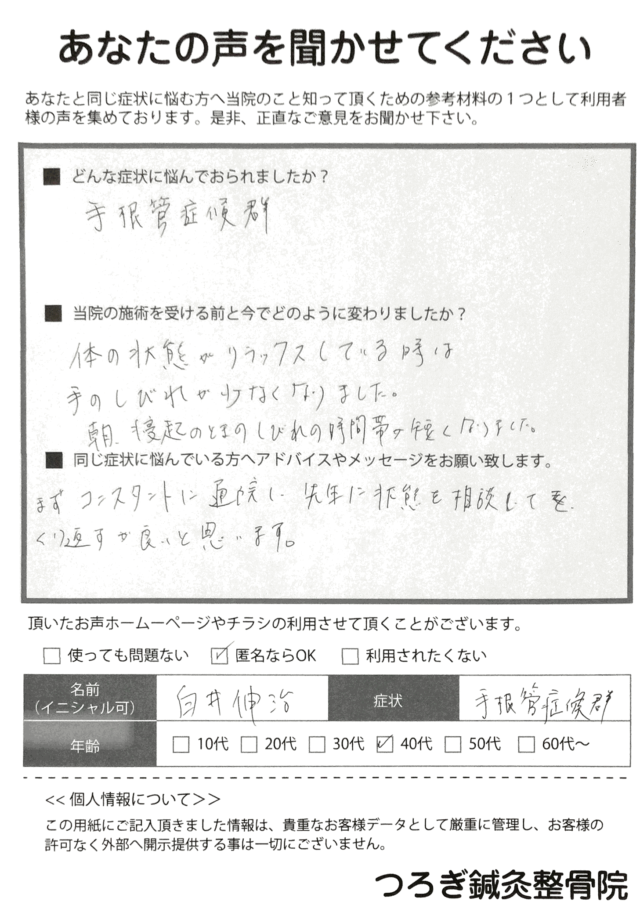 あなたの声を聞かせてください
あなたと同じ症状に悩む方へ当院のこと知って頂くための参考材料の１つとして利用者
様の声を集めております。是非、正直なご意見をお聞かせ下さい。
■ どんな症状に悩んでおられましたか？
手根管症候群
■ 当院の施術を受ける前と今でどのように変わりましたか？
体の状態がリラックスしている時は
手のしびれが少なくなりました。
朝、寝起のときのしびれの時間帯が短くなりました。
■ 同じ症状に悩んでいる方へアドバイスやメッセージをお願い致します。
まずコンスタントに通院し、先生に状態を相談して
くり返すが良いと思います。
頂いたお声ホームーページやチラシの利用させて頂くことがございます。
□ 使っても問題ない ☑ 匿名ならOK □ 利用されたくない
名前
（イニシャル可） 白井伸治 症状 手根管症候群
年齢 □ 10代 □ 20代 □ 30代 ☑ 40代 □ 50代 □ 60代〜
<< 個人情報について＞＞
この用紙にご記入頂きました情報は、貴重なお客様データとして厳重に管理し、お客様の
許可なく外部へ開示提供する事は一切にございません。
つろぎ鍼灸整骨院